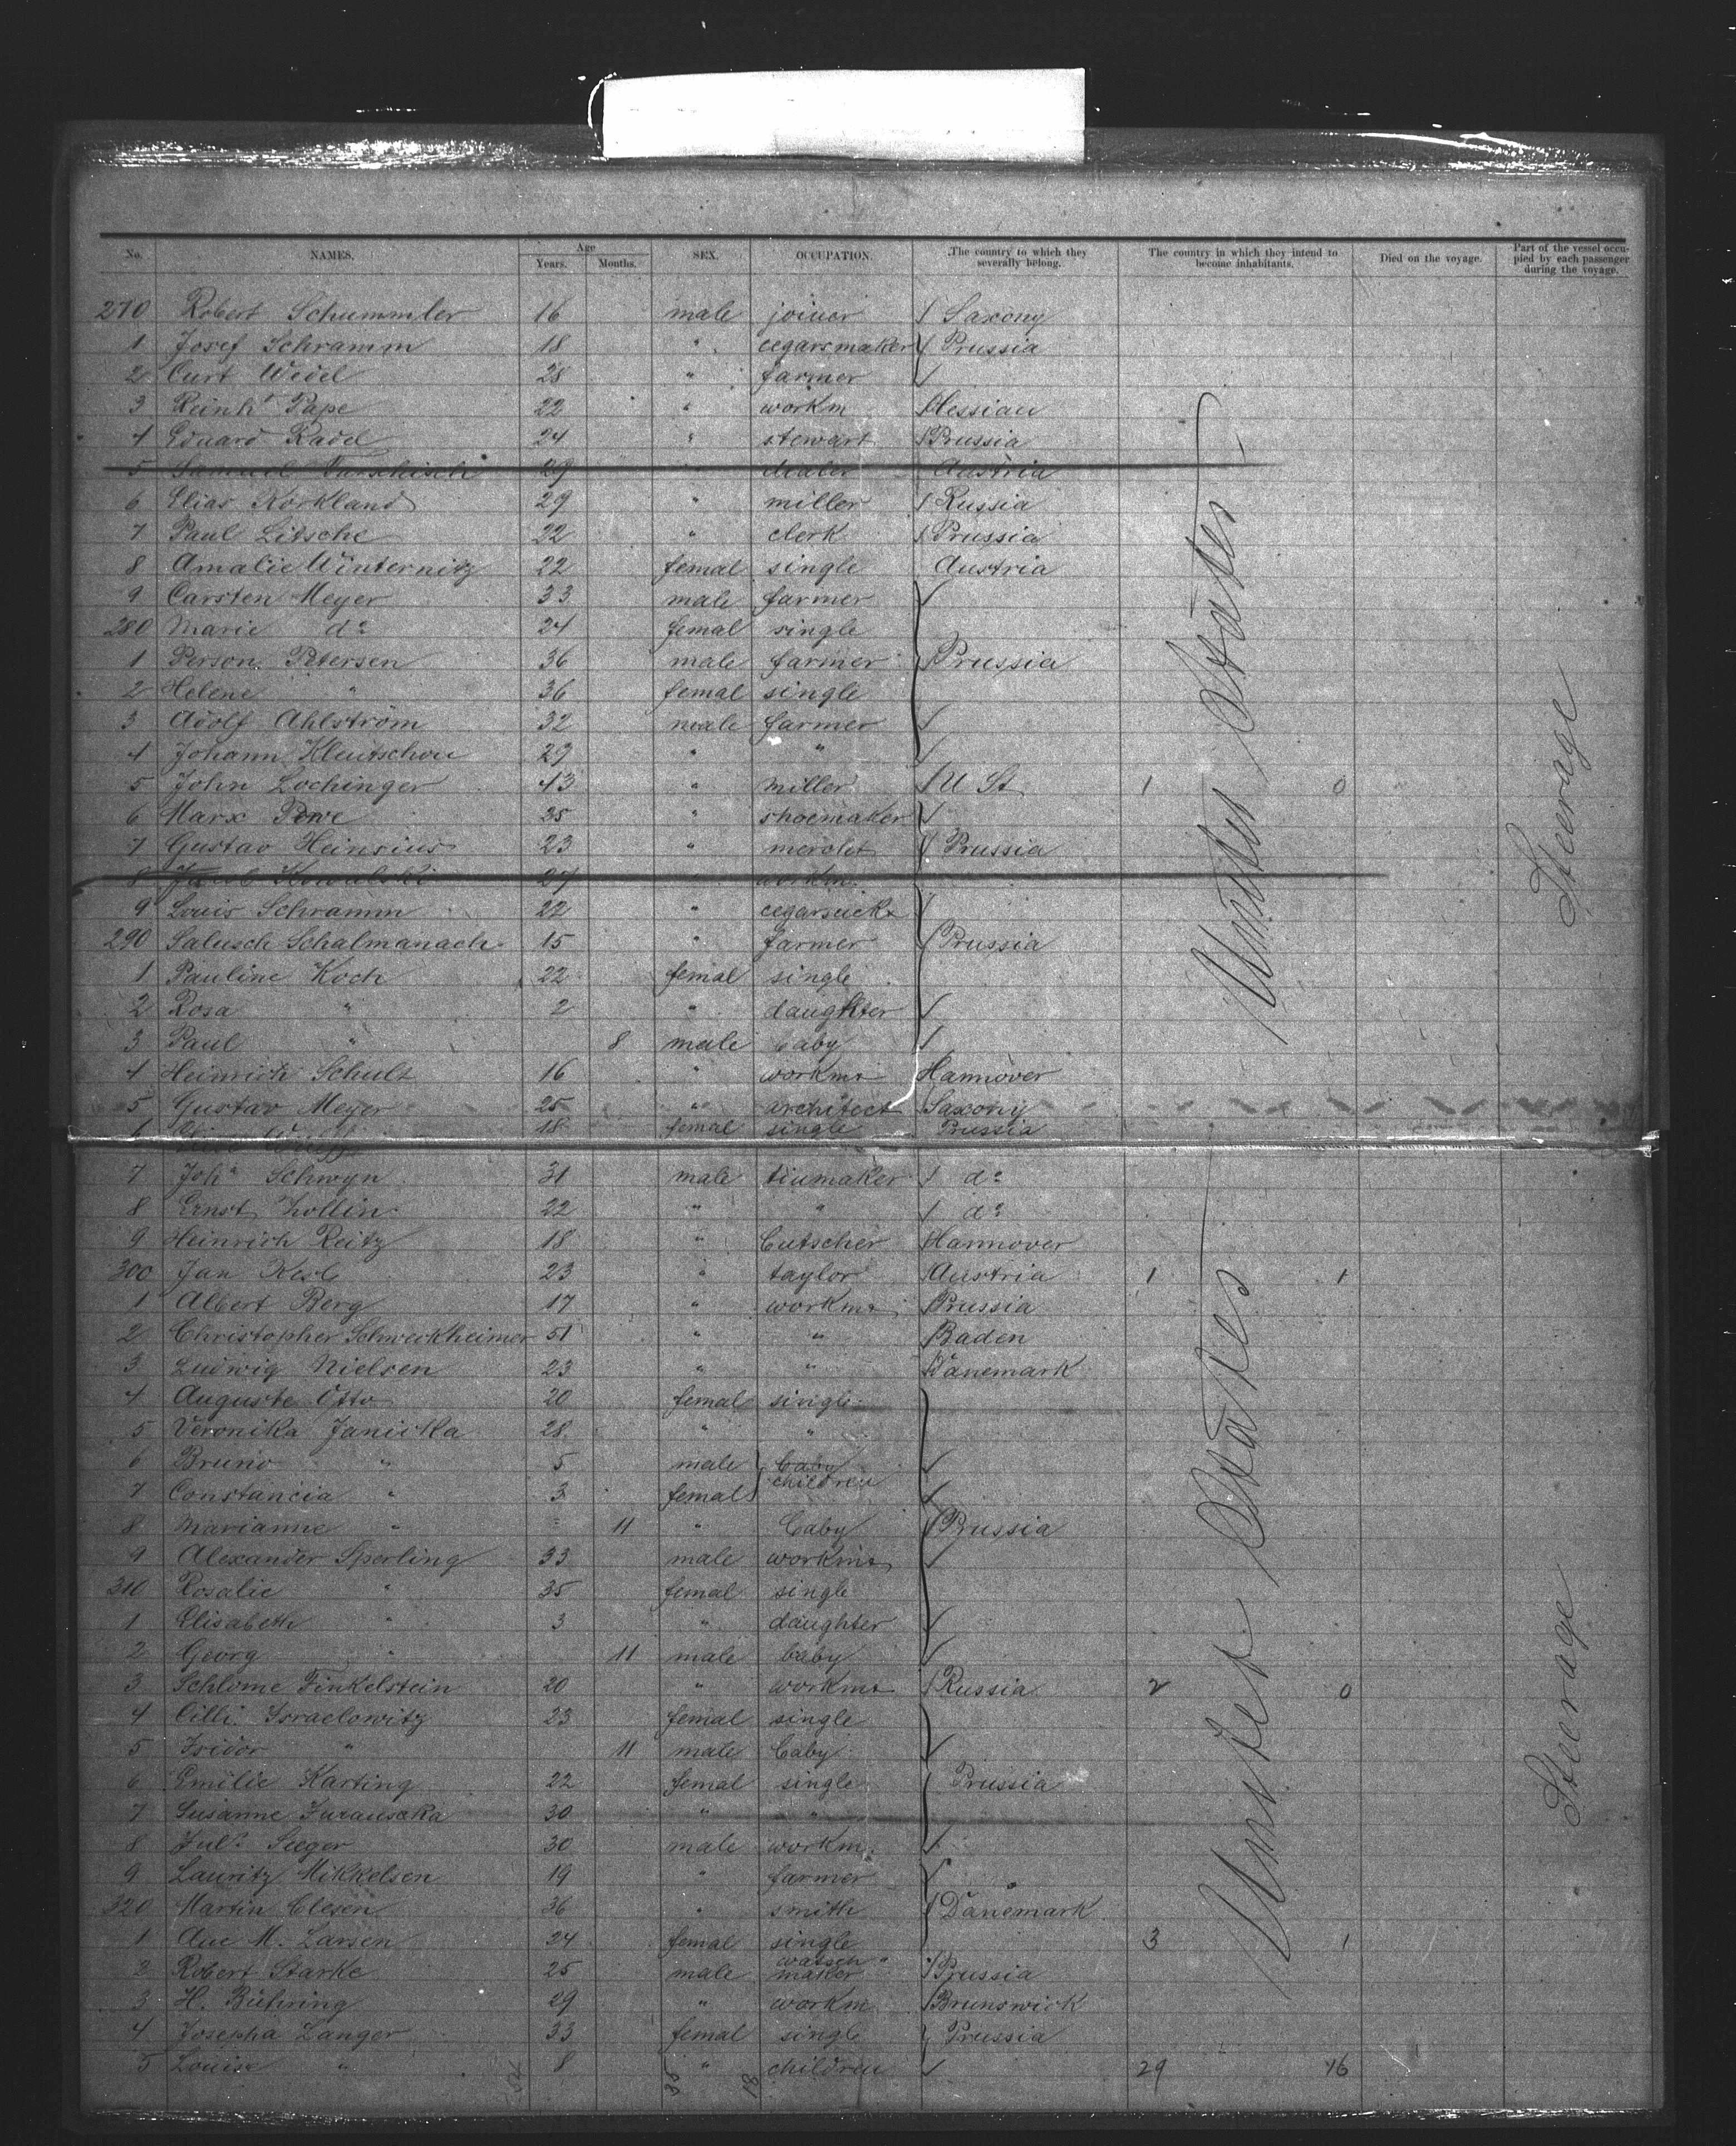 No. NAMES. Age Years. Months. SEX. OCCUPATION. The country to which they severally belong. The country in which they intend to become inhabitants. Died on the voyage. Part of the vessel occupied by each passenger during the voyage.
270 Robert Schummler 16 male joiner Saxony
1 Josef Schramm 18 " cegarsmaker Prussia
2 Curt Wedel 28 " farmer
3 Reinh Pape 22 " workm Hessian
4 Eduard Radel 24 " stewart Prussia
5 Samuel 29 Austria
6 Elias Korkland 29 " miller Russia
7 Paul Litsche 22 " clerk Prussia
8 Amalie Winternitz 22 femal single Austria
9 Carsten Meyer 33 male farmer
280 Marie do 24 femal single
1 Person Petersen 36 male farmer Prussia
2 Helene " 36 femal single
3 Adolf Ahlström 32 male farmer
4 Johann Kleutschou 29 " "
5 John Lochinger 43 " miller U St. 1 0
6 Marx 35 " shoemaker
7 Gustav Heinsius 23 " Prussia
8 Jacob Kowalski 27 workm.
9 Louis Schramm 22 "
290 Salusch Schalmanach 15 " farmer Prussia
1 Pauline Koch 22 femal single
2 Rosa " 2 " daughter
3 Paul " 8 male baby
4 Heinrich Schult 16 " workm Hannover
5 Gustav Meyer 25 " architect Saxony
6 18 femal single Prussia
7 Joh Schwyn 31 male tinmaker do
8 Ernst Zollin 22 " " do
9 Heinrich Reitz 18 " Cutscher Hannover
300 Jan Kesl 23 " taylor Austria 1 1
1 Albert Berg 17 " workm Prussia
2 Christopher Schweckheimer 51 " " Baden
3 Ludwig Nielsen 23 " " Dänemark
4 Auguste Otto 20 femal single
5 Veronika Janicka 28 " "
6 Bruno " 5 male baby
7 Constancia " 3 femal children
8 Marianne " 11 " baby Prussia
9 Alexander Sperling 33 male workm
310 Rosalie " 35 femal single
1 Elisabeth " 3 " daughter
2 Georg " 11 male baby
3 Schlome Finkelstein 20 " workm Russia 2 0
4 Cilli Israelowitz 23 femal single
5 Isidor " 11 male baby
6 Emilie Karting 22 femal single Prussia
7 Susanne 30 " "
8 Jul. Sieger 30 male workm.
9 Lauritz Mikkelsen 19 " farmer
320 Martin Clesen 36 " smith Dänemark
1 Ane M. Larsen 24 femal single 3 1
2 Robert Starke 25 male watsch maker Prussia
3 H. Bühring 29 " workm Brunswick
4 Josepha Langer 33 femal singl Prussia
5 Louise " 8 " children 29 16
36 18
United States
United States
Steerage
Steerage